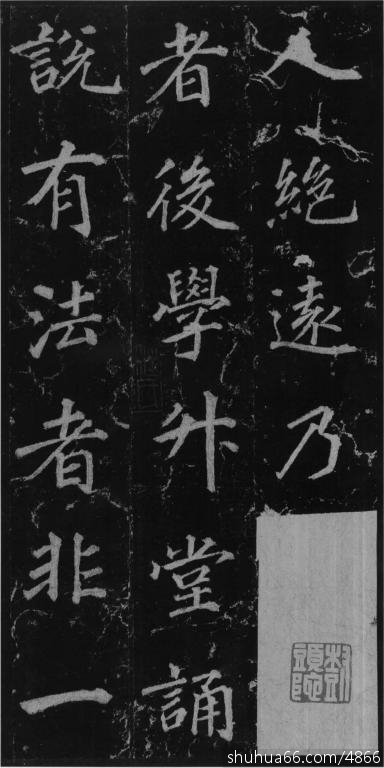 人絶遠乃
者後學升堂誦
說有法者非一
shuhua66.com/4866